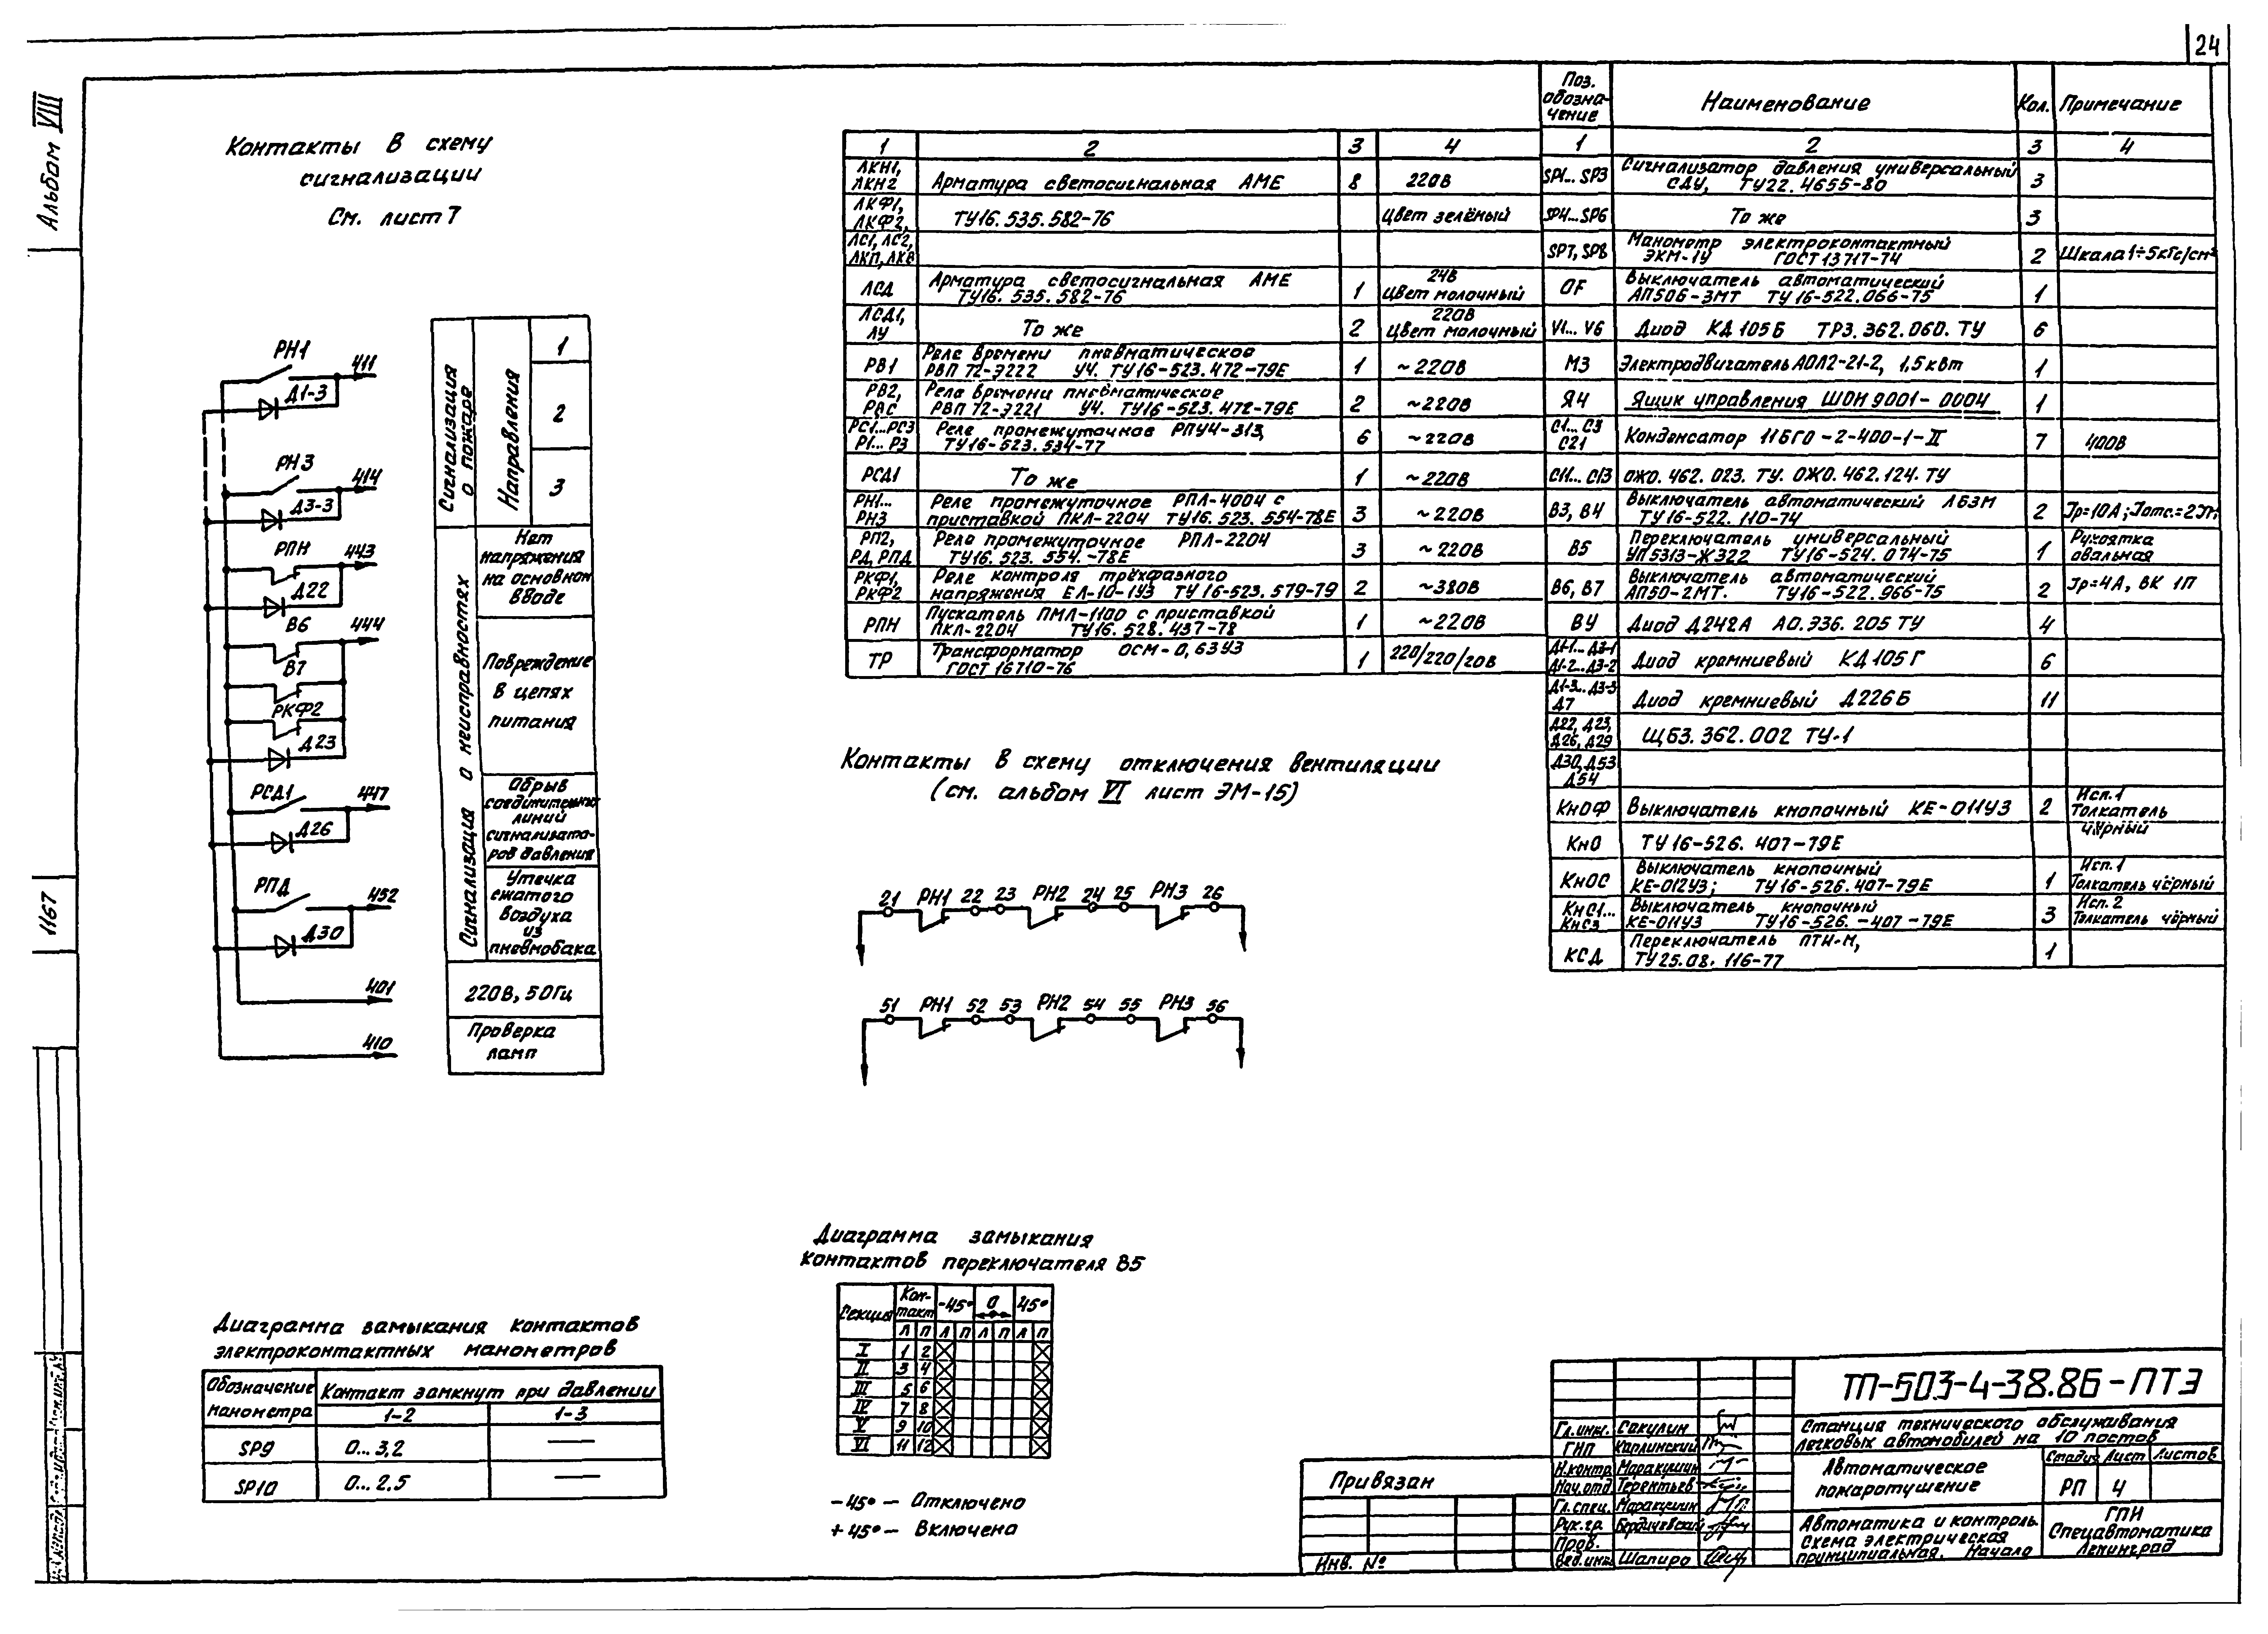 24
Альбом VIII
1167
Контакты в схему
сигнализации
См. лист 7
РН1
411
Д1-3
РН3
414
Д3-3
РПН
443
Д22
В6
444
В7
РКФ2
Д23
РСД1
447
Д26
РПД
452
Д30
401
410
Сигнализация
о пожаре
Направления
1
2
3
Сигнализация о неисправностях
Нет
напряжения
на основном
вводе
Повреждение
в цепях
питания
Обрыв
соединительных
линий
сигнализато-
ров давления
Утечка
сжатого
воздуха
из
пневмобака
220В, 50Гц
Проверка
ламп
1 2 3 4
ЛКН1,
ЛКН2 Арматура светосигнальная АМЕ 8 220В
ЛКФ1,
ЛКФ2, ТУ16.535.582-76 Цвет зелёный
ЛС1, ЛС2,
ЛКП, ЛКВ
ЛСД Арматура светосигнальная АМЕ 1 24В
ТУ16.535.582-76 Цвет молочный
ЛСД1,
ЛУ То же 2 220В
Цвет молочный
РВ1 Реле времени пневматическое
РВП 72-3222 УЧ. ТУ16-523.472-79Е 1 ~220В
РВ2,
РВС Реле времени пневматическое
РВП 72-3221 УЧ. ТУ16-523.472-79Е 2 ~220В
РС1...РС3
Р1...Р3 Реле промежуточное РПУ4-313,
ТУ16-523.534-77 6 ~220В
РСД1 То же 1 ~220В
РН1...
РН3 Реле промежуточное РПЛ-4004 с
приставкой ПКЛ-2204 ТУ16.523.554-78Е 3 ~220В
РП2,
РД, РПД Реле промежуточное РПЛ-2204
ТУ16.523.554.-78Е 3 ~220В
РКФ1,
РКФ2 Реле контроля трёхфазного
напряжения ЕЛ-10-1У3 ТУ16-523.579-79 2 ~380В
РПН Пускатель ПМЛ-1100 с приставкой
ПКЛ-2204 ТУ16.528.437-78 1 ~220В
ТР Трансформатор ОСМ-0,63У3
ГОСТ 16710-76 1 220/220/20В
Поз.
обозна-
чение Наименование Кол. Примечание
1 2 3 4
SP1...SP3 Сигнализатор давления универсальный
СДУ, ТУ22.4655-80 3
SP4...SP6 То же 3
SP7, SP8 Манометр электроконтактный
ЭКМ-1У ГОСТ 13717-74 2 Шкала 1÷5кГс/см²
QF Выключатель автоматический
АП50Б-3МТ ТУ16-522.066-75 1
V1...V6 Диод КД105Б ТР3.362.060.ТУ 6
М3 Электродвигатель АОЛ2-21-2, 1,5кВт 1
Я4 Ящик управления ШОН 9001-0004 1
С1...С3
С21 Конденсатор 11БГО-2-400-1-II 7 400В
С11...С13 ОЖО.462.023.ТУ. ОЖО.462.124.ТУ
В3, В4 Выключатель автоматический ЛБ3М
ТУ16-522.110-74 2 Jр=10А; Jотс.=2Jн;
В5 Переключатель универсальный
УП5313-Ж322 ТУ16-524.074-75 1 Рукоятка
овальная
В6, В7 Выключатель автоматический
АП50-2МТ. ТУ16-522.966-75 2 Jр=4А, ВК 1П
ВУ Диод Д242А АО.336.205 ТУ 4
Д1-1...Д3-1
Д1-2...Д3-2 Диод кремниевый КД105Г 6
Д1-3...Д3-3
Д7 Диод кремниевый Д226Б 11
Д22, Д23,
Д26, Д29 ЩБ3.362.002 ТУ-1
Д30, Д53
Д54
КнОФ Выключатель кнопочный КЕ-011У3 2 Исп.1
Толкатель
чёрный
КнО ТУ16-526.407-79Е
КнОС Выключатель кнопочный
КЕ-012У3; ТУ16-526.407-79Е 1 Исп.1
Толкатель чёрный
КнС1...
КнС3 Выключатель кнопочный
КЕ-011У3 ТУ16-526.-407-79Е 3 Исп. 2
Толкатель чёрный
КСД Переключатель ПТИ-М,
ТУ25.08.116-77 1
Контакты в схему отключения вентиляции
(см. альбом VI лист ЭМ-15)
21 РН1 22 23 РН2 24 25 РН3 26
51 РН1 52 53 РН2 54 55 РН3 56
Диаграмма замыкания
контактов переключателя В5
Секция Кон-
такт -45° 0 45°
Л П Л П Л П Л П
I 1 2
II 3 4
III 5 6
IV 7 8
V 9 10
VI 11 12
-45° – Отключено
+45° – Включено
Диаграмма замыкания контактов
электроконтактных манометров
Обозначение
манометра Контакт замкнут при давлении
1-2 1-3
SP9 0...3,2 —
SP10 0...2,5 —
Привязан
Инв. №
ТП-503-4-38.86-ПТЭ
Гл.инж. Сакулин
ГИП Карлинский
Н.контр. Маракушин
Нач.отд. Терентьев
Гл.спец. Маракушин
Рук.гр. Бердичевский
Пров.
Вед.инж. Шапиро
Станция технического обслуживания
легковых автомобилей на 10 постов
Автоматическое
пожаротушение
Стадия Лист Листов
РП 4
Автоматика и контроль.
Схема электрическая
принципиальная. Начало
ГПИ
Спецавтоматика
Ленинград